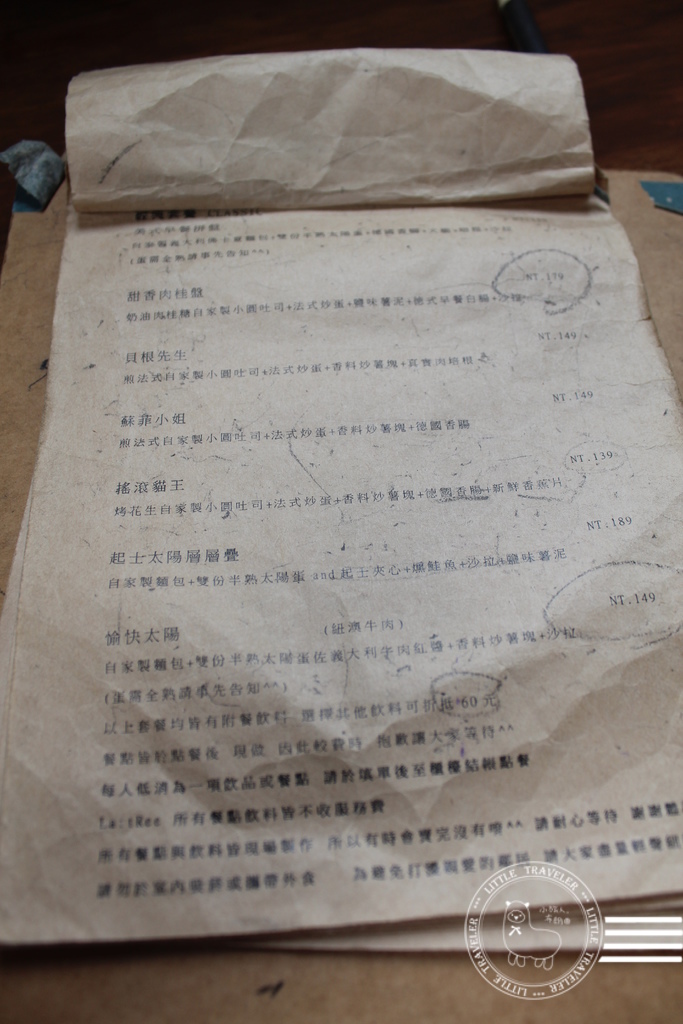 CLASSIC
美式早餐拼盤
(蛋需全熟請事先告知^^)
甜香肉桂盤 NT.179
奶油肉桂糖自家製小圓吐司+法式炒蛋+鹽味薯泥+德式早餐白腸+沙拉
貝根先生 NT.149
煎法式自家製小圓吐司+法式炒蛋+香料炒薯塊+真實肉培根
蘇菲小姐 NT.149
煎法式自家製小圓吐司+法式炒蛋+香料炒薯塊+德國香腸
搖滾貓王 NT.139
烤花生自家製小圓吐司+法式炒蛋+香料炒薯塊+德國香腸+新鮮香蕉片
起士太陽層層疊 NT.189
自家製麵包+雙份半熟太陽蛋 and起士夾心+燻鮭魚+沙拉+鹽味薯泥
愉快太陽 (紐澳牛肉) NT.149
自家製麵包+雙份半熟太陽蛋佐義大利牛肉紅醬+香料炒薯塊+沙拉
(蛋需全熟請事先告知^^)
以上套餐均皆有附餐飲料 選擇其他飲料可折抵60元
餐點皆於點餐後 現做 因此較費時 抱歉讓大家等待^^
每人低消為一項飲品或餐點 請於填單後至櫃檯結帳點餐
所有餐點飲料皆不收服務費
所有餐點與飲料皆現場製作 所以有時會賣完沒有唷^^ 請耐心等待 謝謝
請勿於室內吸菸或攜帶外食 為避免打擾親愛的鄰居 請大家盡量輕聲
LITTLE TRAVELER
LITTLE TRAVELER
LITTLE TRAVELER
小旅人